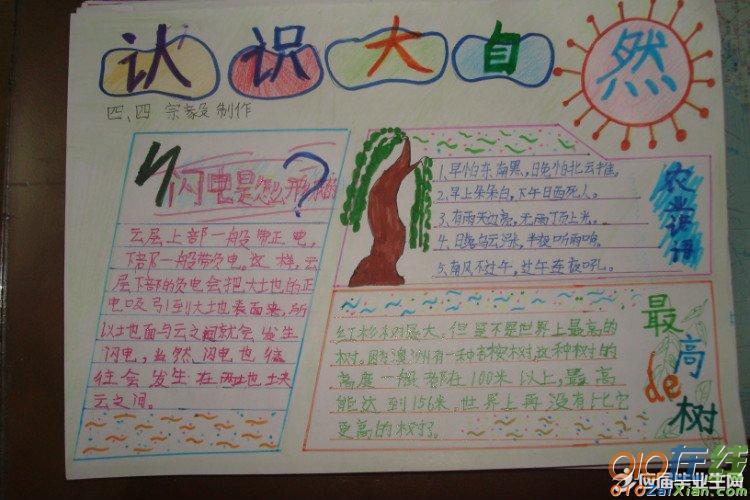 认识大自然
四、四 宗毅制作
闪电是怎么形
云层上部一般带正电,
下部一般带负电。这样,云
层下部的负电会把大地的正
电吸引到大地表面来,所
以地面与云之间就会发生
闪电,当然,闪电也往
往会发生在两
云之间。
1.早怕东南黑,晚怕北云推。
2.早上朵朵白,下午日西死人。
3.有雨天边亮,无雨顶上光。
4.日落乌云涨,半夜听雨响。
5.南风不过午,过午连夜吼。
农业谚语
红杉树最大。但是不是世界上最高的
树。因为澳洲有一种杏桉树,这种树的
高度一般都在100米以上,最高
能达到156米。世界上再没有比它
更高的树了。
最高de树
应届毕业生网
010zaixian.com